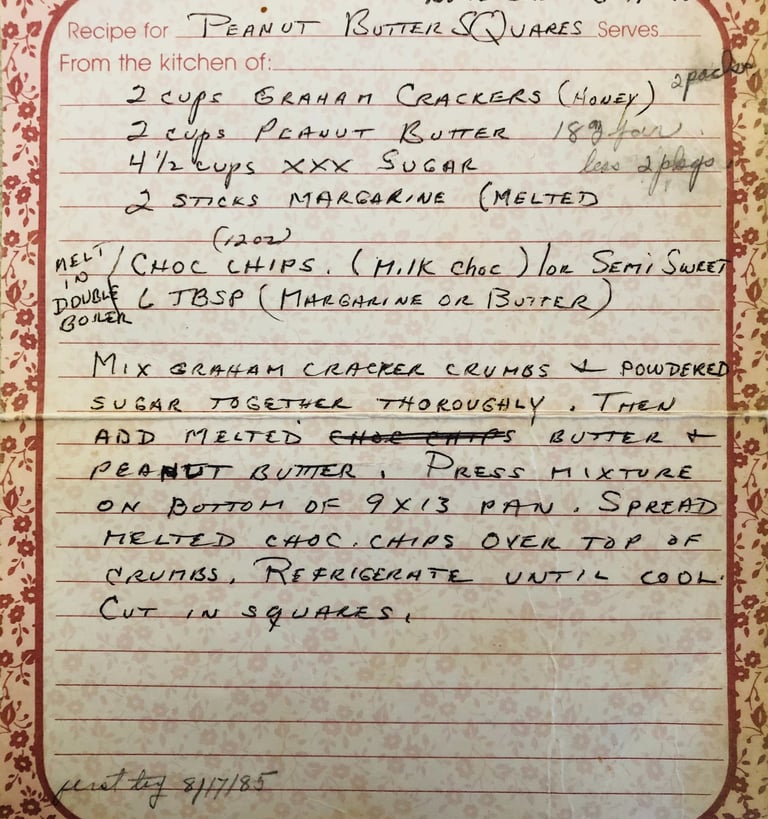 Recipe for PEANUT BUTTER SQUARES Serves
From the kitchen of:
2 CUPS GRAHAM CRACKERS (HONEY) 2 packs
2 CUPS PEANUT BUTTER 18
4 1/2 CUPS XXX SUGAR less 2
2 STICKS MARGARINE (MELTED
(12 oz)
MELT IN DOUBLE BOILER
CHOC CHIPS. (MILK CHOC) /OR SEMI SWEET
6 TBSP (MARGARINE OR BUTTER)
MIX GRAHAM CRACKER CRUMBS & POWDERED
SUGAR TOGETHER THOROUGHLY. THEN
ADD MELTED CHOC CHIPS BUTTER &
PEANUT BUTTER. PRESS MIXTURE
ON BOTTOM OF 9X13 PAN. SPREAD
MELTED CHOC. CHIPS OVER TOP OF
CRUMBS. REFRIGERATE UNTIL COOL.
CUT IN SQUARES.
8/17/85